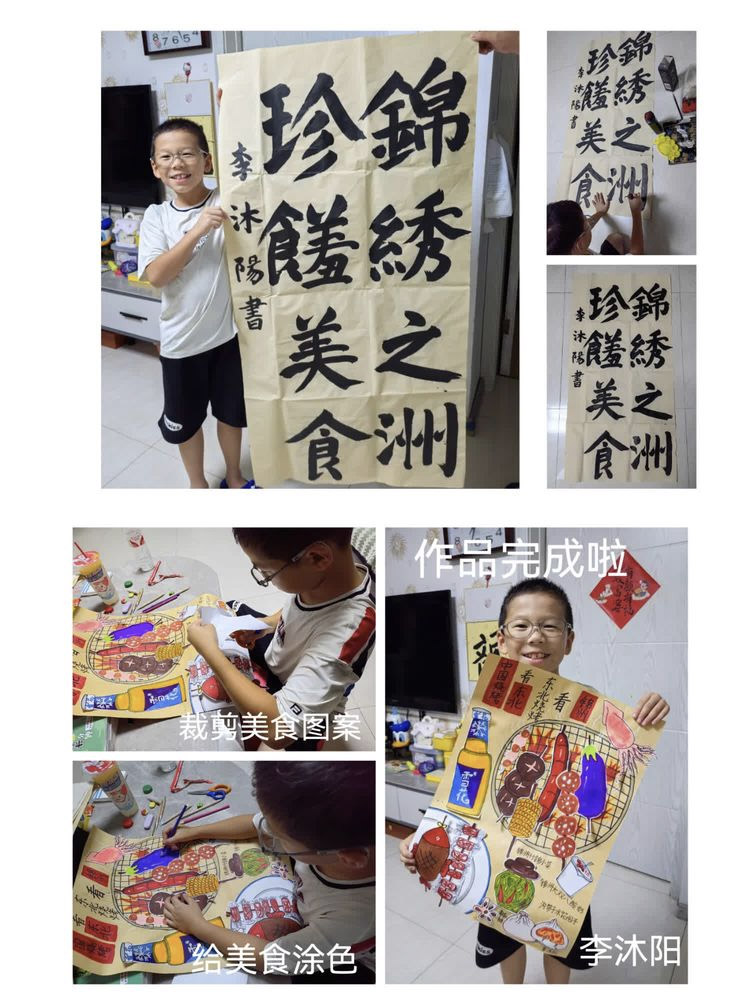 錦綉之洲
珍饈美食
李沐陽書
錦綉之洲
珍饈美食
李沐陽書
錦綉之洲
珍饈美食
李沐陽書
裁剪美食图案
给美食涂色
作品完成啦
中国烧烤
看东北
东北烧烤
看
锦州
雪花
李沐阳